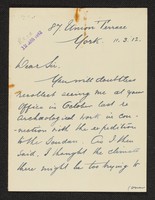 87 Union Terrace
York. 11.3.12.
Dear Sir,
You will doubtless
recollect seeing me at your
Office in October last re
Archaeological work in con-
nection with the expedition
to the Soudan. As I then
said, I thought the climate
there might be too trying to